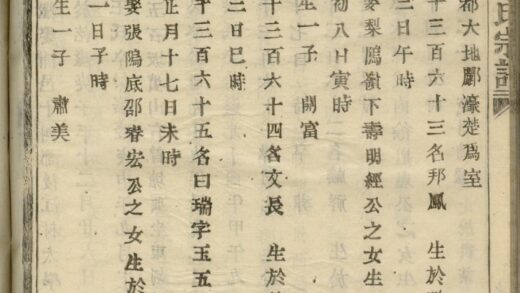 氏宗譜
都大地鄺濠楚爲室
十三百六十三名邦鳳 生於
三日午時
娶梨鴎嶺下壽明經公之女生
初八日寅時
生一子 開富
十三百六十四名文長 生於
二日巳時
十三百六十五名曰瑞字玉五
正月十七日未時
娶張隝底邵睿宏公之女生於
一日子時
生一子 肅美